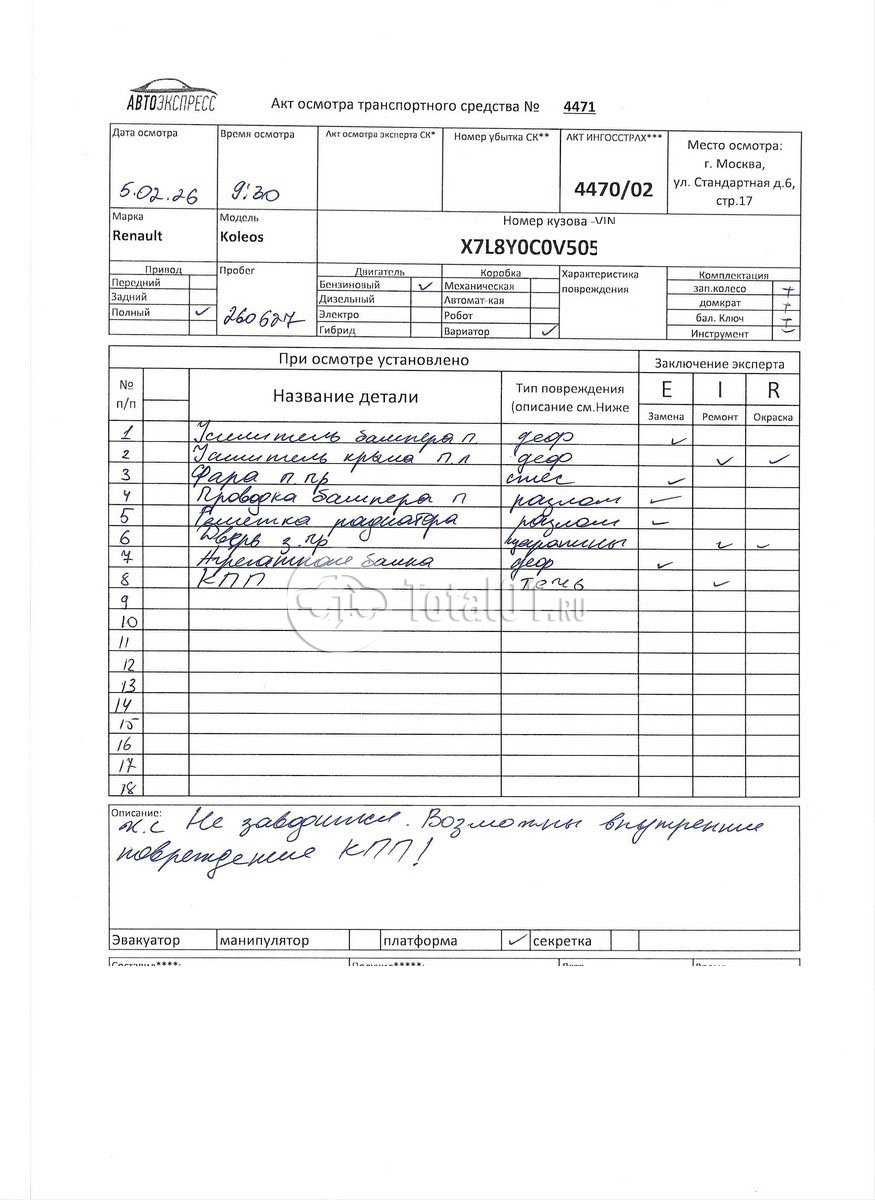 АВТОЭКСПРЕСС
Акт осмотра транспортного средства № 4471
Дата осмотра Время осмотра Акт осмотра эксперта СК* Номер убытка СК** АКТ ИНГОССТРАХ*** Место осмотра:
г. Москва,
ул. Стандартная д.6,
стр.17
5.02.26 9:30 4470/02
Марка Модель Номер кузова -VIN
Renault Koleos X7L8Y0C0V505
Привод Пробег Двигатель Коробка Характеристика повреждения Комплектация
Передний Бензиновый ✓ Механическая зап.колесо +
Задний Дизельный Автомат-кая домкрат +
Полный ✓ 260627 Электро Робот бал. Ключ +
Гибрид Вариатор ✓ Инструмент –
При осмотре установлено Заключение эксперта
№ п/п Название детали Тип повреждения (описание см.Ниже E I R
Замена Ремонт Окраска
1 Усилитель бампера п. деф ✓
2 Усилитель крыла п.л деф ✓ ✓
3 Фара п.пр ✓
4 Проводка бампера п разлом ✓
5 Решетка радиатора разлом ✓
6 Дверь з.пр царапины ✓ ✓
7 деф ✓
8 КПП течь ✓
9
10
11
12
13
14
15
16
17
18
Total01.RU
Описание:
Не заводится. Возможны внутренние
повреждение КПП!
Эвакуатор манипулятор платформа ✓ секретка